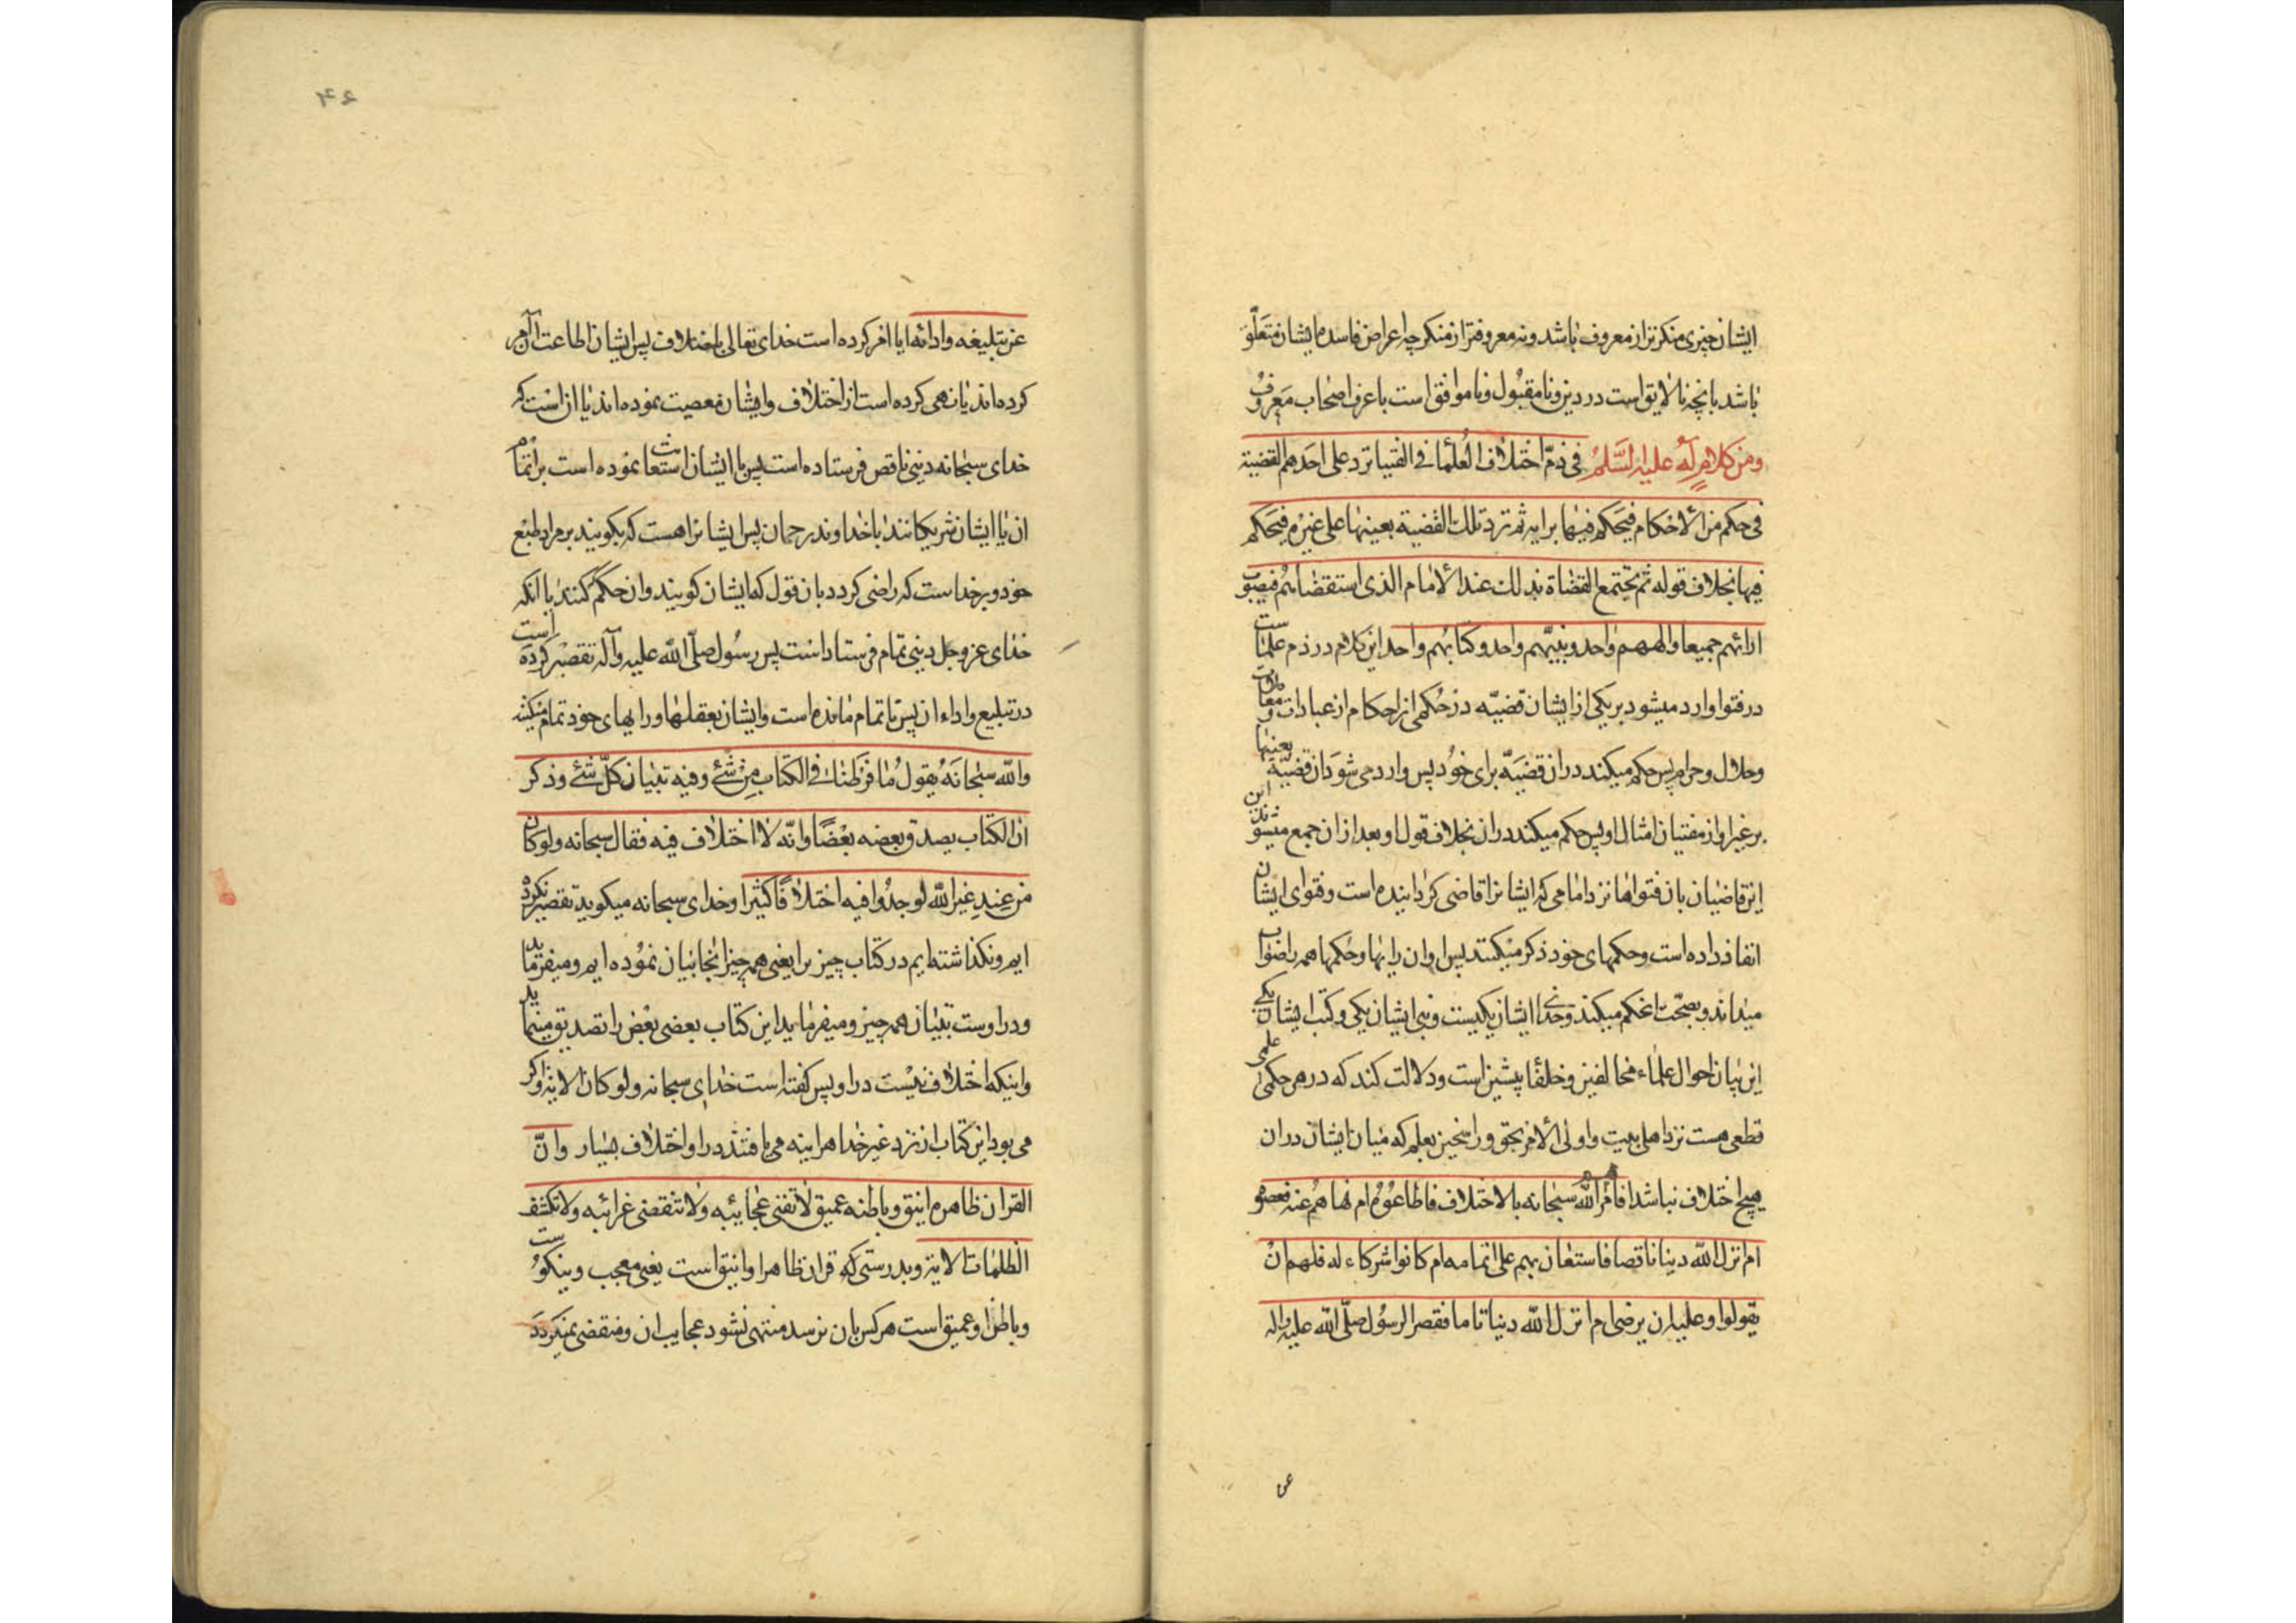 ایشان چیزی منکرتر از معروف باشد و نه معروفتر از منکر چه اعراض فاسده ایشان متعلّق
باشد بانچه نالایق است در دین و نامقبول و ناموافق است با عرف اصحاب معروف
ومن کلام له علیه السلم فی ذمّ اختلاف العُلمٰا فی الفتیا ترد علی احدهم القضیة
فی حکم من الاحکام فیحکم فیها برایه ثم ترد تلك القضیة بعینها علی غیره فیحکم
فیها بخلاف قوله ثم یجتمع القضاة بذلك عند الامام الذی استقضاهم فیصوب
ارائهم جمیعا والههم واحد ونبیّهم واحد وکتابهم واحد این کلام در ذم علما ست
در فتوا وارد میشود بر یکی از ایشان قضیّه در حکمی از احکام از عبادات و معاملات
وحلال وحرام پس حکم میکند در ان قضیّه برای خود پس وارد می شود ان قضیّه بعینها
بر غیر او از مفتیان امثال او پس حکم میکند در ان بخلاف قول او بعد از ان جمع میشوند این
این قاضیان بان فتواها نزد امامی که ایشانرا قاضی کردانیده است و فتوای ایشان
انفاذ داده است وحکمهای خود ذکر میکنند پس او ان رایها وحکمها همه را صواب
میداند و بصحّت انحکم میکند وخدای ایشان یکیست ونبی ایشان یکی وکتب ایشان یکی
این بیان احوال علماء مخالفین وخلفا پیشین است ودلالت کند که در هر حکمی علمی
قطعی هست نزد اهل بیت واولی الامر بحق وراسخین بعلم که میان ایشان دران
هیچ اختلاف نباشد افامرهم الله سبحانه بالاختلاف فاطاعوه ام نهاهم عنه فعصوه
ام انزل الله دینا ناقصا فاستعان بهم علی اتمامه ام کانوا شرکاء له فلهم ان
یقولوا وعلیه ان یرضی ام انزل الله دینا تاما فقصر الرسول صلّی الله علیه واله
عن
۴۶
عن تبلیغه وادائه ایا امر کرده است خدای تعالی باختلاف پس ایشان اطاعت ان امر
کرده اند یا نهی کرده است از اختلاف وایشان معصیت نموده اند یا ان است که
خدای سبحانه دینی ناقص فرستاده است پس با ایشان استعانت نموده است بر اتمام
ان یا ایشان شریکانند با خداوند رحمان پس ایشانرا هست که بکویند بر مراد طبع
خود وبر خداست که راضی کردد بان قول که ایشان کویند وان حکم کنند یا انکه
خدای عز وجل دینی تمام فرستاد است پس رسول صلّی الله علیه وآله تقصیر کرده است
در تبلیغ واداء ان پس ناتمام مانده است وایشان بعقلها ورایهای خود تمام میکنند
والله سبحانه یقول ما فرطنا فی الکتاب من شئ وفیه تبیان کل شئ وذکر
ان الکتاب یصدق بعضه بعضًا وانّه لا اختلاف فیه فقال سبحانه ولو کان
من عند غیر الله لوجدوا فیه اختلافًا کثیرا وخدای سبحانه میکوید تقصیر نکرده
ایم ونکذاشته ایم در کتاب چیزیرا یعنی همه چیز انجا بیان نموده ایم ومیفرماید
ودر اوست تبیان همه چیز ومیفرماید این کتاب بعضی بعض را تصدیق مینماید
واینکه اختلاف نیست در او پس کفته است خدای سبحانه ولو کان الایة واکر
می بود این کتاب از نزد غیر خدا هراینه می یافتند در او اختلاف بسیار وانّ
القران ظاهره انیق وباطنه عمیق لا تفنی عجائبه ولا تنقضی غرائبه ولا تکشف
الظلمات الا به وبدرستی که قران ظاهر او انیق است یعنی معجب ونیکوست
وباطن او عمیق است هر کس بان نرسد منتهی نشود عجایب ان ومنقضی نمیکردد